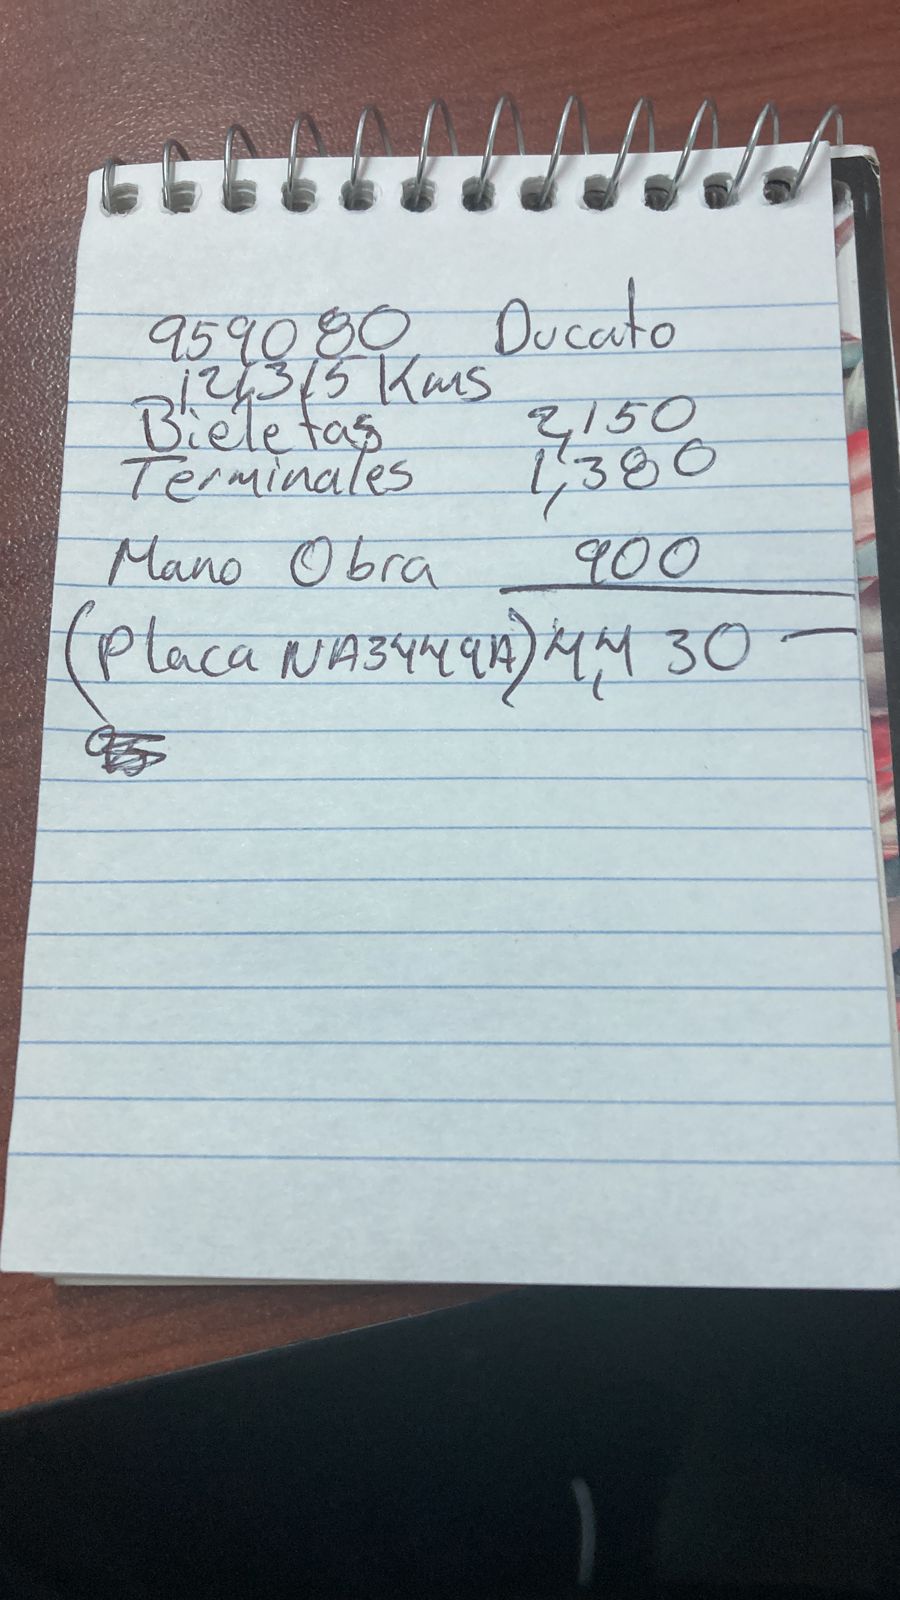 959080 Ducato
121,315 Kms
Bieletas 2,150
Terminales 1,380
Mano Obra 900
(Placa NA3449A) 4,430